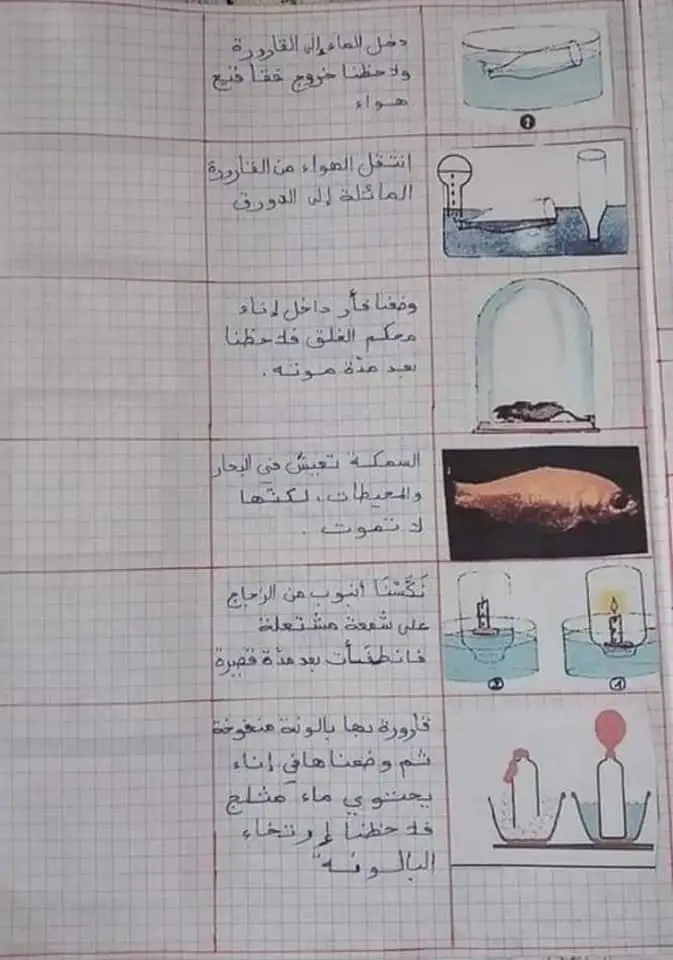 دخل الماء إلى القارورة
ولاحظنا خروج فقاقيع
هواء
1
انتقل الهواء من القارورة
المائلة إلى الدورق
وضعنا فأر داخل إناء
محكم الغلق فلاحظنا
بعد مدّة موته.
السمكة تعيش في البحار
والمحيطات، لكنّها
لا تموت.
نَكَّسْنَا أنبوب من الزجاج
على شمعة مشتعلة
فانطفأت بعد مدّة قصيرة
2 1
قارورة بها بالونة منفوخة
ثم وضعناها في إناء
يحتوي ماء مثلج
فلاحظنا إرتخاء
البالونة"